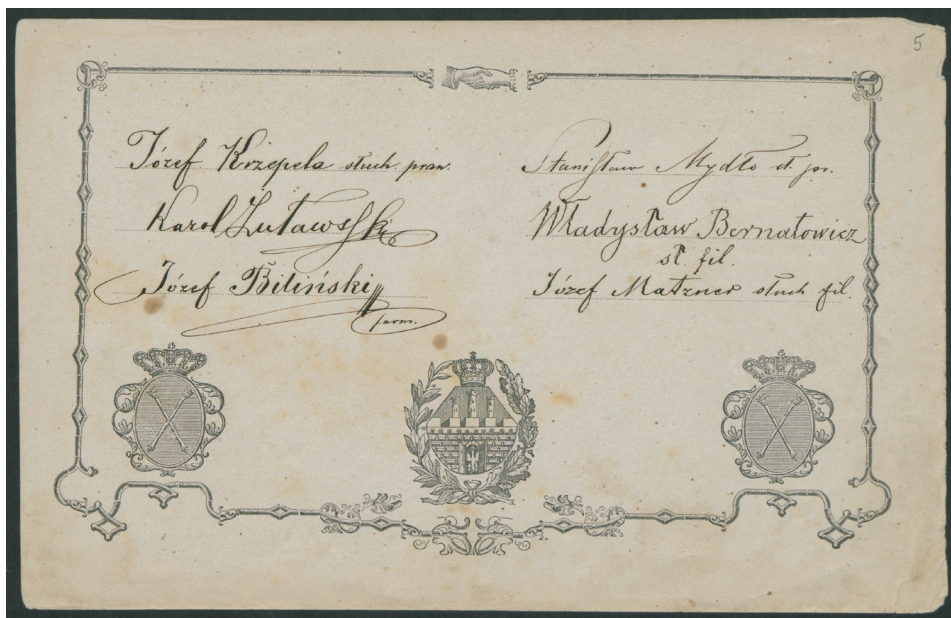 5
Józef Krzepela słuch. praw.
Karol Żuławski
Józef Biliński
farm.
Stanisław Mydło sł. pr.
Władysław Bernatowicz
sł. fil.
Józef Matzner słuch fil.